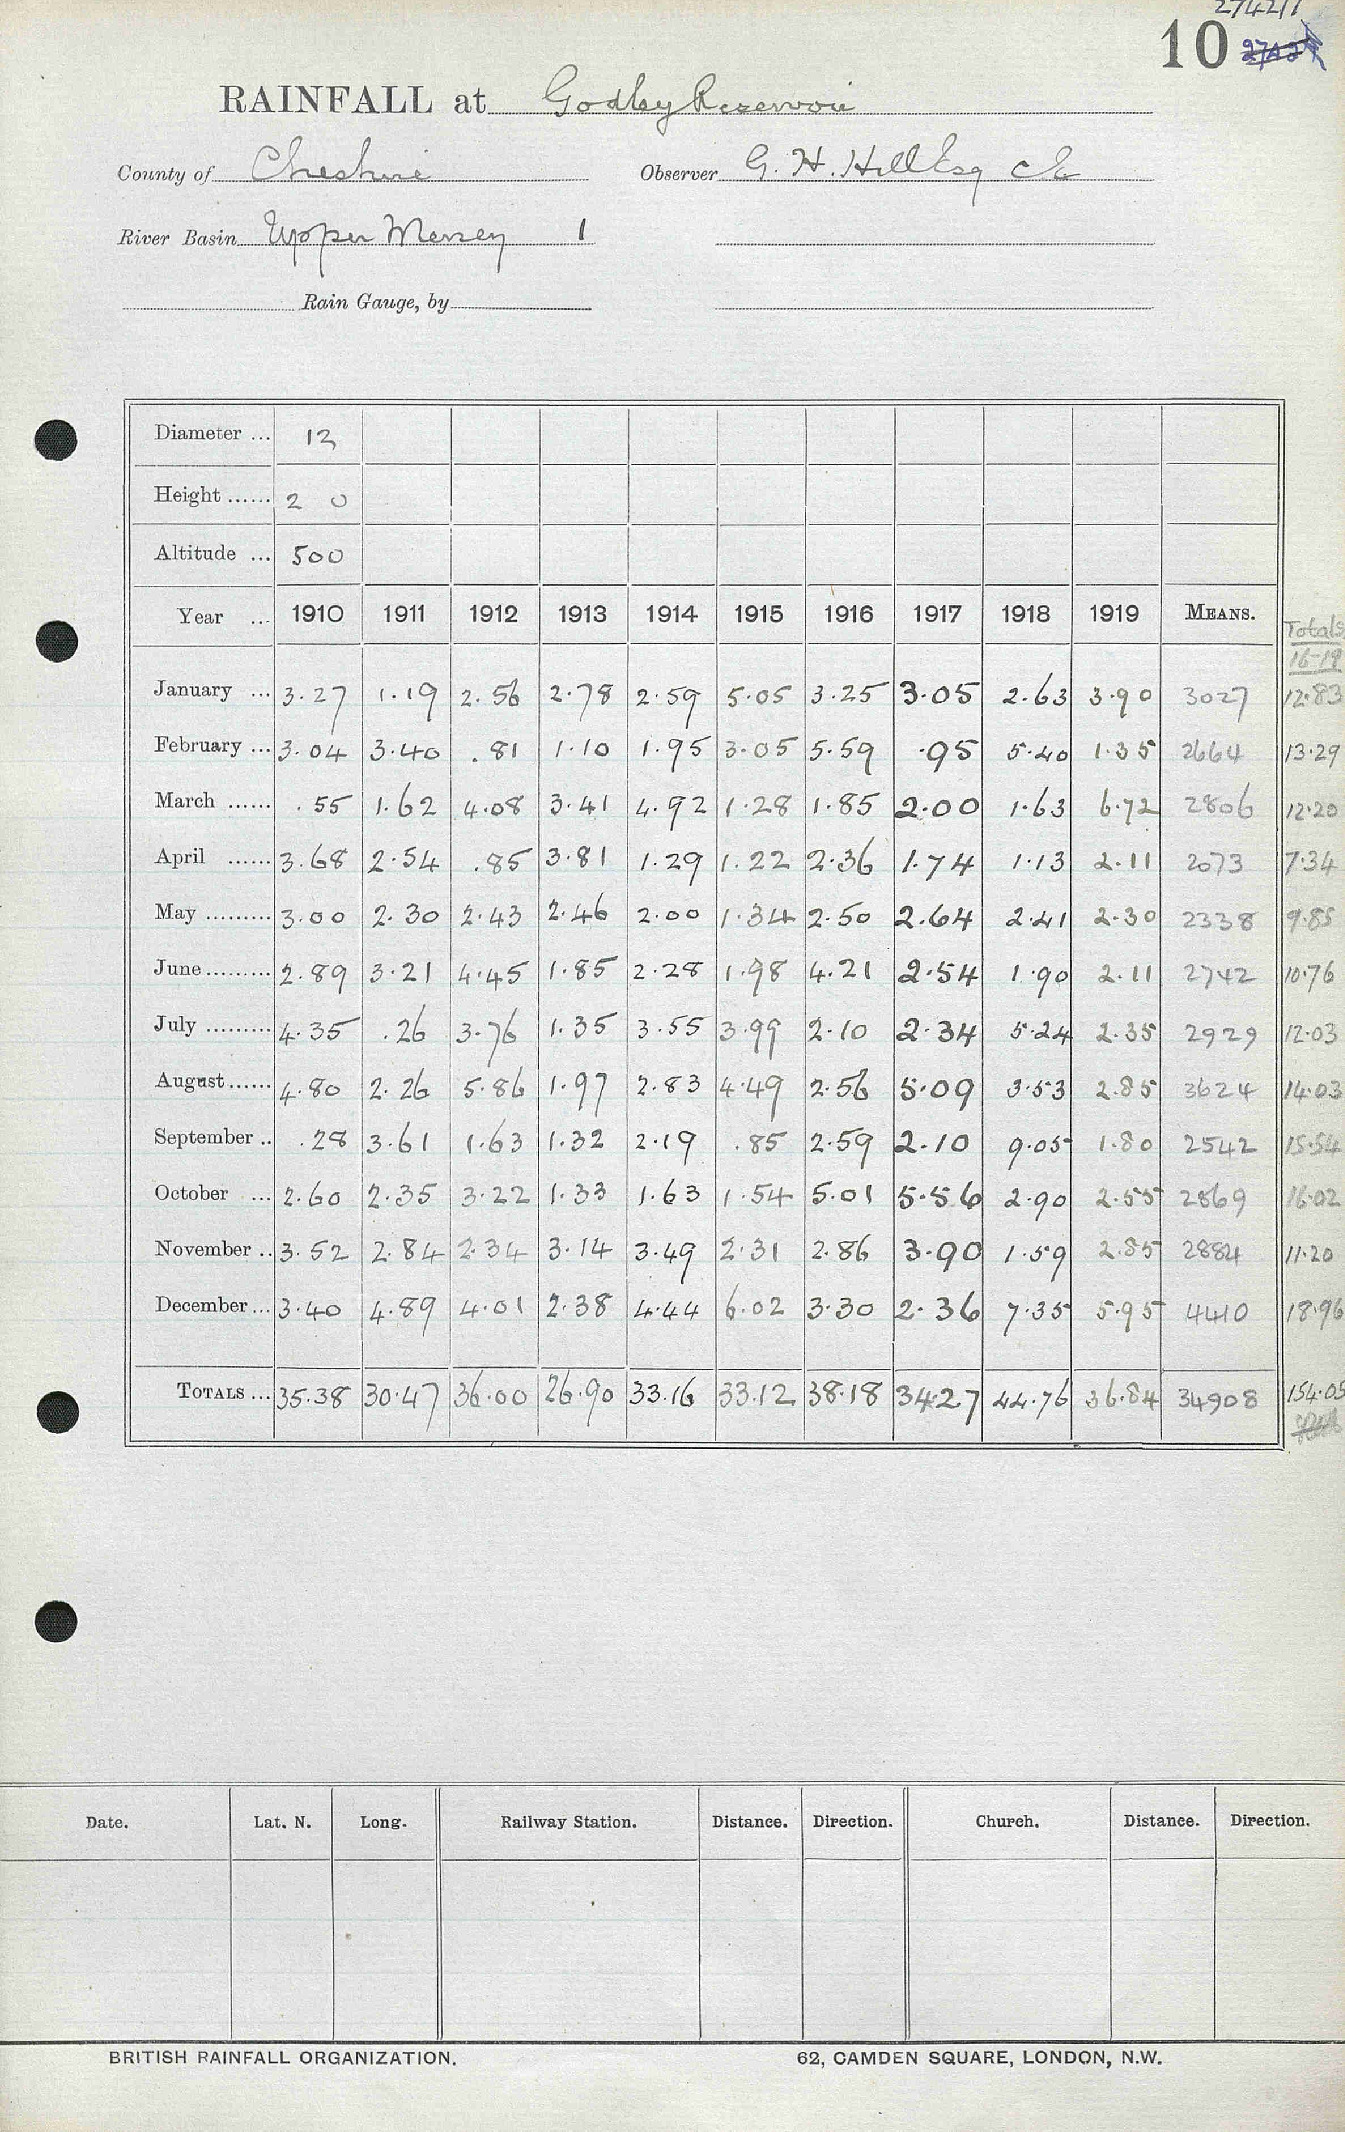 27421
10
RAINFALL at Godley Reservoir
County of Cheshire Observer G. H. Hill Esq
River Basin Upper Mersey 1
Rain Gauge, by
Diameter ... 12
Height ...... 2 0
Altitude ... 500
Year ... 1910 1911 1912 1913 1914 1915 1916 1917 1918 1919 MEANS. Totals 16-19
January ... 3.27 1.19 2.56 2.78 2.59 5.05 3.25 3.05 2.63 3.90 3027 12.83
February ... 3.04 3.40 .81 1.10 1.95 3.05 5.59 .95 5.40 1.35 2664 13.29
March ...... .55 1.62 4.08 3.41 4.92 1.28 1.85 2.00 1.63 6.72 2806 12.20
April ...... 3.68 2.54 .85 3.81 1.29 1.22 2.36 1.74 1.13 2.11 2073 7.34
May ......... 3.00 2.30 2.43 2.46 2.00 1.34 2.50 2.64 2.41 2.30 2338 9.85
June ......... 2.89 3.21 4.45 1.85 2.28 1.98 4.21 2.54 1.90 2.11 2742 10.76
July ......... 4.35 .26 3.76 1.35 3.55 3.99 2.10 2.34 5.24 2.35 2929 12.03
August ...... 4.80 2.26 5.86 1.97 2.83 4.49 2.56 5.09 3.53 2.85 3624 14.03
September .. .28 3.61 1.63 1.32 2.19 .85 2.59 2.10 9.05 1.80 2542 15.54
October ... 2.60 2.35 3.22 1.33 1.63 1.54 5.01 5.56 2.90 2.55 2869 16.02
November .. 3.52 2.84 2.34 3.14 3.49 2.31 2.86 3.90 1.59 2.85 2884 11.20
December ... 3.40 4.89 4.01 2.38 4.44 6.02 3.30 2.36 7.35 5.95 4410 18.96
TOTALS ... 35.38 30.47 36.00 26.90 33.16 33.12 38.18 34.27 44.76 36.84 34908 154.05
Date. Lat. N. Long. Railway Station. Distance. Direction. Church. Distance. Direction.
BRITISH RAINFALL ORGANIZATION. 62, CAMDEN SQUARE, LONDON, N.W.